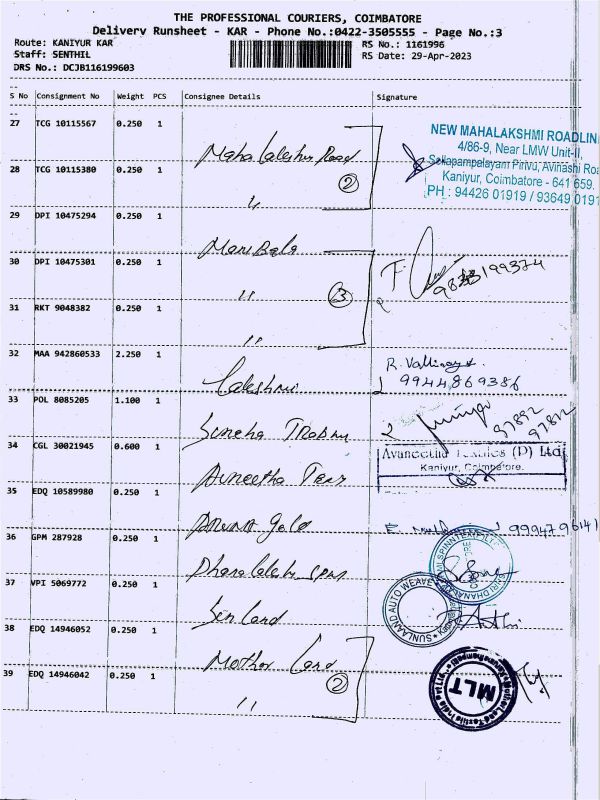 THE PROFESSIONAL COURIERS, COIMBATORE
Delivery Runsheet - KAR - Phone No.:0422-3505555 - Page No.:3
Route: KANIYUR KAR
RS No.: 1161996
Staff: SENTHIL
RS Date: 29-Apr-2023
DRS No.: DCJB116199603
S No Consignment No Weight PCS Consignee Details Signature
27 TCG 10115567 0.250 1 Maha Laleshm Road
NEW MAHALAKSHMI ROADLIN
4/86-9, Near LMW Unit-II,
Sellapampalayam Pirivu, Avinashi Roa
Kaniyur, Coimbatore - 641 659.
PH : 94426 01919 / 93649 0191
28 TCG 10115380 0.250 1 "
2
29 DPI 10475294 0.250 1 Mani Bala
30 DPI 10475301 0.250 1 "
3
31 RKT 9048382 0.250 1 "
32 MAA 942860533 2.250 1 Laleshmi
9944869386
33 POL 8085205 1.100 1 Sineha
97892
34 CGL 30021945 0.600 1 Avneetha Texs
Avaneetha Textiles (P) Ltd
Kaniyur, Coimbatore.
35 EDQ 10589980 0.250 1
9994796141
36 GPM 287928 0.250 1 Dhanalaleshmi
37 VPI 5069772 0.250 1 Sun Land
SUNLAND AUTO WEAVE
38 EDQ 14946052 0.250 1 Mother Land
2
39 EDQ 14946042 0.250 1 "
MLT